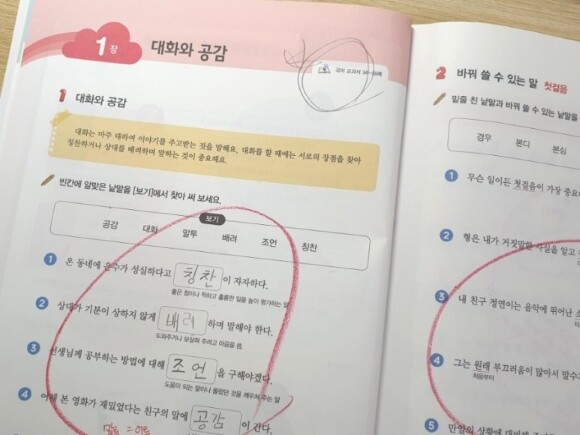 1장 대화와 공감
국어 교과서
1 대화와 공감
대화는 마주 대하여 이야기를 주고받는 것을 말해요. 대화를 할 때에는 서로의 장점을 찾아
칭찬하거나 상대를 배려하며 말하는 것이 중요해요.
빈칸에 알맞은 낱말을 [보기]에서 찾아 써 보세요.
보기
공감 대화 말투 배려 조언 칭찬
1 온 동네에 윤수가 성실하다고 칭찬 이 자자하다.
좋은 점이나 착하고 훌륭한 일을 높이 평가하는 말
2 상대가 기분이 상하지 않게 배려 하며 말해야 한다.
도와주거나 보살펴 주려고 마음을 씀.
3 선생님께 공부하는 방법에 대해 조언 을 구해야겠다.
도움이 되는 말이나 몰랐던 것을 깨우쳐 주는 말
4 어제 본 영화가 재밌었다는 친구의 말에 공감 이 간다.
2 바꿔 쓸 수 있는 말 첫걸음
밑줄 친 낱말과 바꿔 쓸 수 있는 낱말을
경우 본디 본심
1 무슨 일이든 첫걸음이 가장 중요
2 형은 내가 거짓말한 사실을 알고
3 내 친구 정면이는 음악에 뛰어난
4 그는 원래 부끄러움이 많아서 말수가
처음부터
5 만일의 상황에 대비해